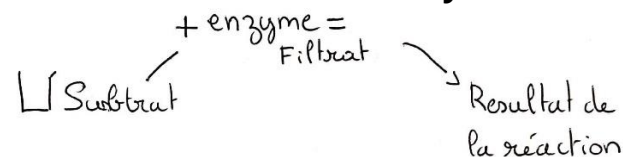 + enzyme =
Filtrat
Substrat
Resultat de
la réaction